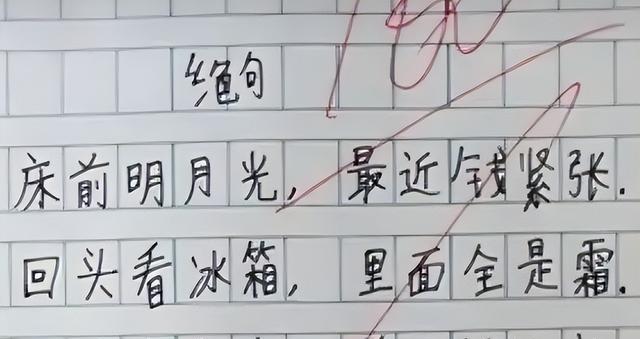 绝句
床前明月光, 最近钱紧张.
回头看冰箱, 里面全是霜.